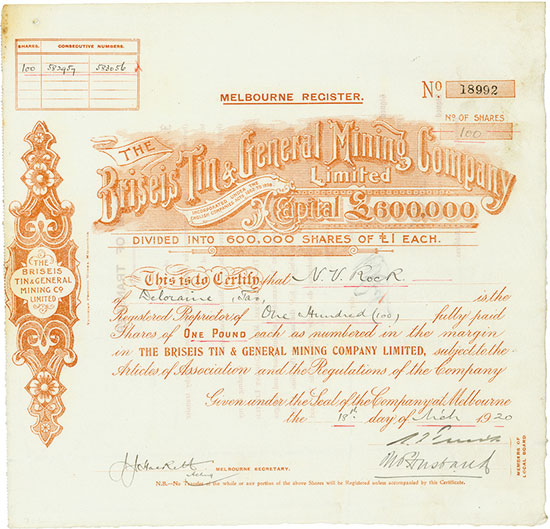 SHARES. CONSECUTIVE NUMBERS.
100 582957 583056
MELBOURNE REGISTER.
No. 18992
No. OF SHARES
100
THE
Briseis Tin & General Mining Company
Limited
INCORPORATED UNDER THE
ENGLISH COMPANIES ACTS
Capital £600,000.
DIVIDED INTO 600,000 SHARES OF £1 EACH.
THE
BRISEIS
TIN & GENERAL
MINING CO
LIMITED
This is to Certify that N. V. Rock
of Deloraine, Tas, is the
Registered Proprietor of One Hundred (100) fully paid
Shares of ONE POUND each as numbered in the margin
in THE BRISEIS TIN & GENERAL MINING COMPANY LIMITED, subject to the
Articles of Association and the Regulations of the Company
Given under the Seal of the Company at Melbourne
the 18th day of Mch 1920
Husband
Hackett
Acting
MELBOURNE SECRETARY.
MEMBERS OF
LOCAL BOARD
N.B.—No Transfer of the whole or any portion of the above Shares will be Registered unless accompanied by this Certificate.